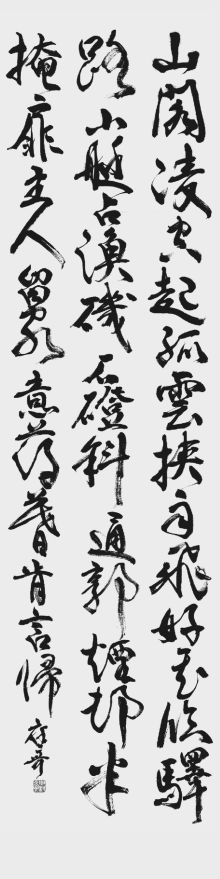 山閣凌空起孤雲挾身飛好花臨驛
路小艇占漁磯石磴斜通郭煙邨半
掩扉主人留意薄暮肯言歸